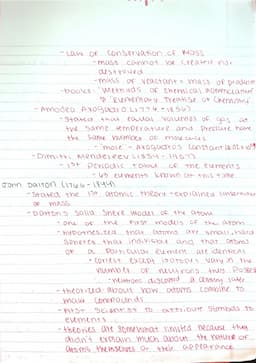 - Law of Conservation of Mass
- mass cannot be created nor
destroyed
- mass of reactant = mass of products
- books: "Methods of Chemical Nomenclature"
& "Elementary Treatise of Chemistry"
- Amadeo Avogadro (1776-1856)
- stated that equal volumes of gas at
the same temperature and pressure have
the same number of molecules
- "mole" - Avogadro's constant
- Dimitri Mendeleev (1834-1907)
- 1st periodic table of the elements
- 63 elements known at this time
John Dalton (1766-1844)
- Stated the 1st atomic theory - explained conservation
of mass
- Dalton's Solid Sphere Model of the atom
- one of the first models of the atom
- hypothesized that atoms are small, hard
spheres that indivisible and that atoms
of a particular element are identical
- correct except isotopes vary in the
number of neutrons they possess
- neutrons discovered a century later
- theorized about how atoms combine to
make compounds
- First scientist to attribute symbols to
elements
- theories are somewhat limited because they
didn't explain much about the nature of
atoms themselves or their appearance